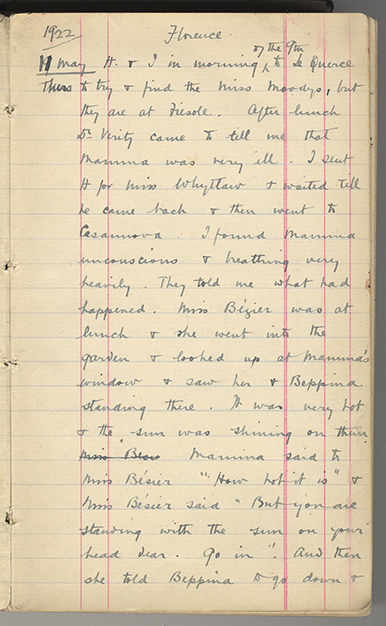 1922 Florence.
of the 9th
11 May H. & I in morning to Le Querce
Thurs to try & find the Miss Moodys, but
they are at Fiesole. After lunch
Dr Verity came to tell me that
Mamma was very ill. I sent
H for Miss Whyttaw & waited till
he came back & then went to
Casanova. I found Mamma
unconscious & breathing very
heavily. They told me what had
happened. Miss Bézier was at
lunch & she went into the
garden & looked up at Mamma's
window & saw her & Beppina
standing there. It was very hot
& the sun was shining on them
Mamma said to
Miss Bésier "How hot it is" &
Miss Bésier said "But you are
standing with the sun on your
head dear. Go in". And then
she told Beppina to go down &